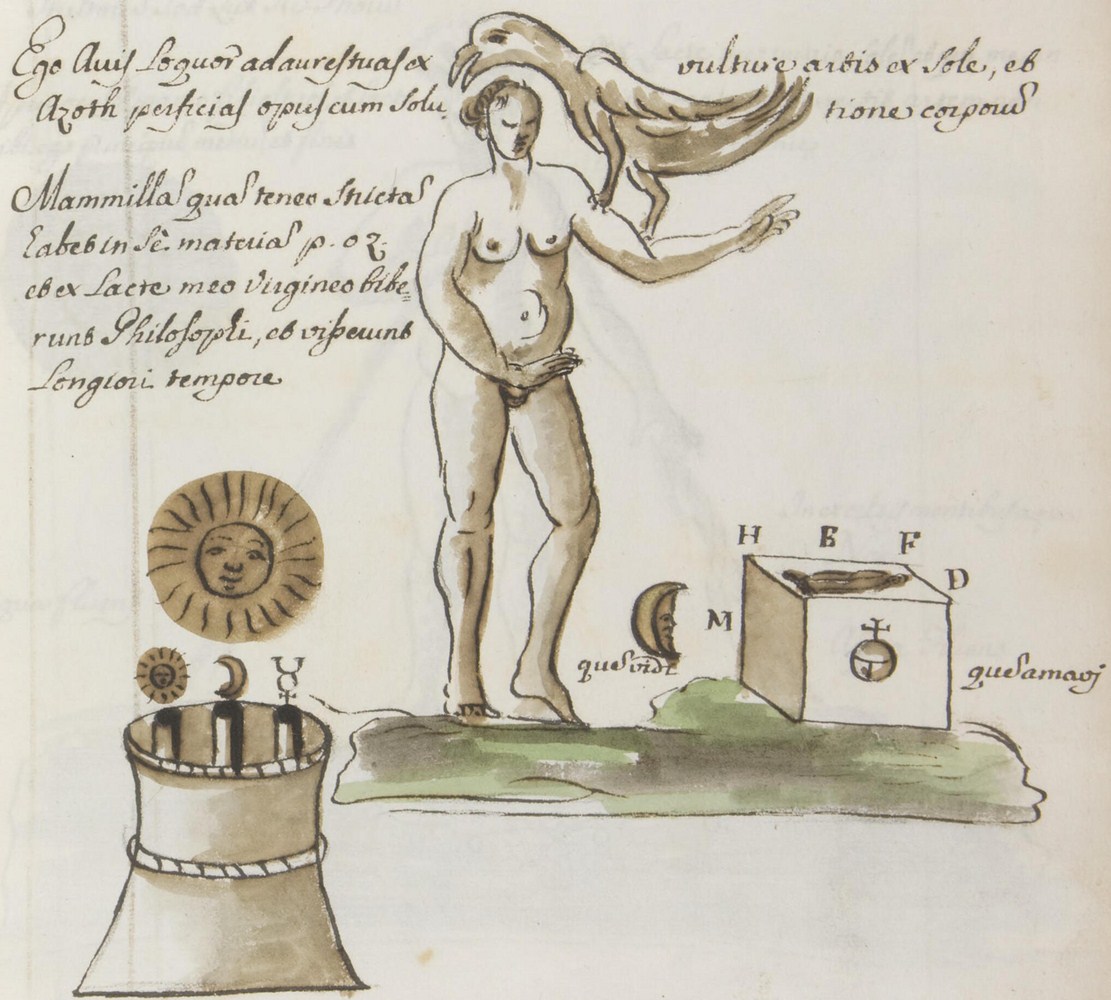 Ego Auis Loquor ad aures tuas ex vulture artis ex Sole, et
Azoth perficias opus cum Solu, tione corporũ
Mammillas quas teneo Strictas
habet in Sè materias p. oz.
et ex Lacte meo Virgineo bibe=
runt Philosophi, et vixerunt
Longiori tempore
H B F
D
M
ques vidt
ques amaoj